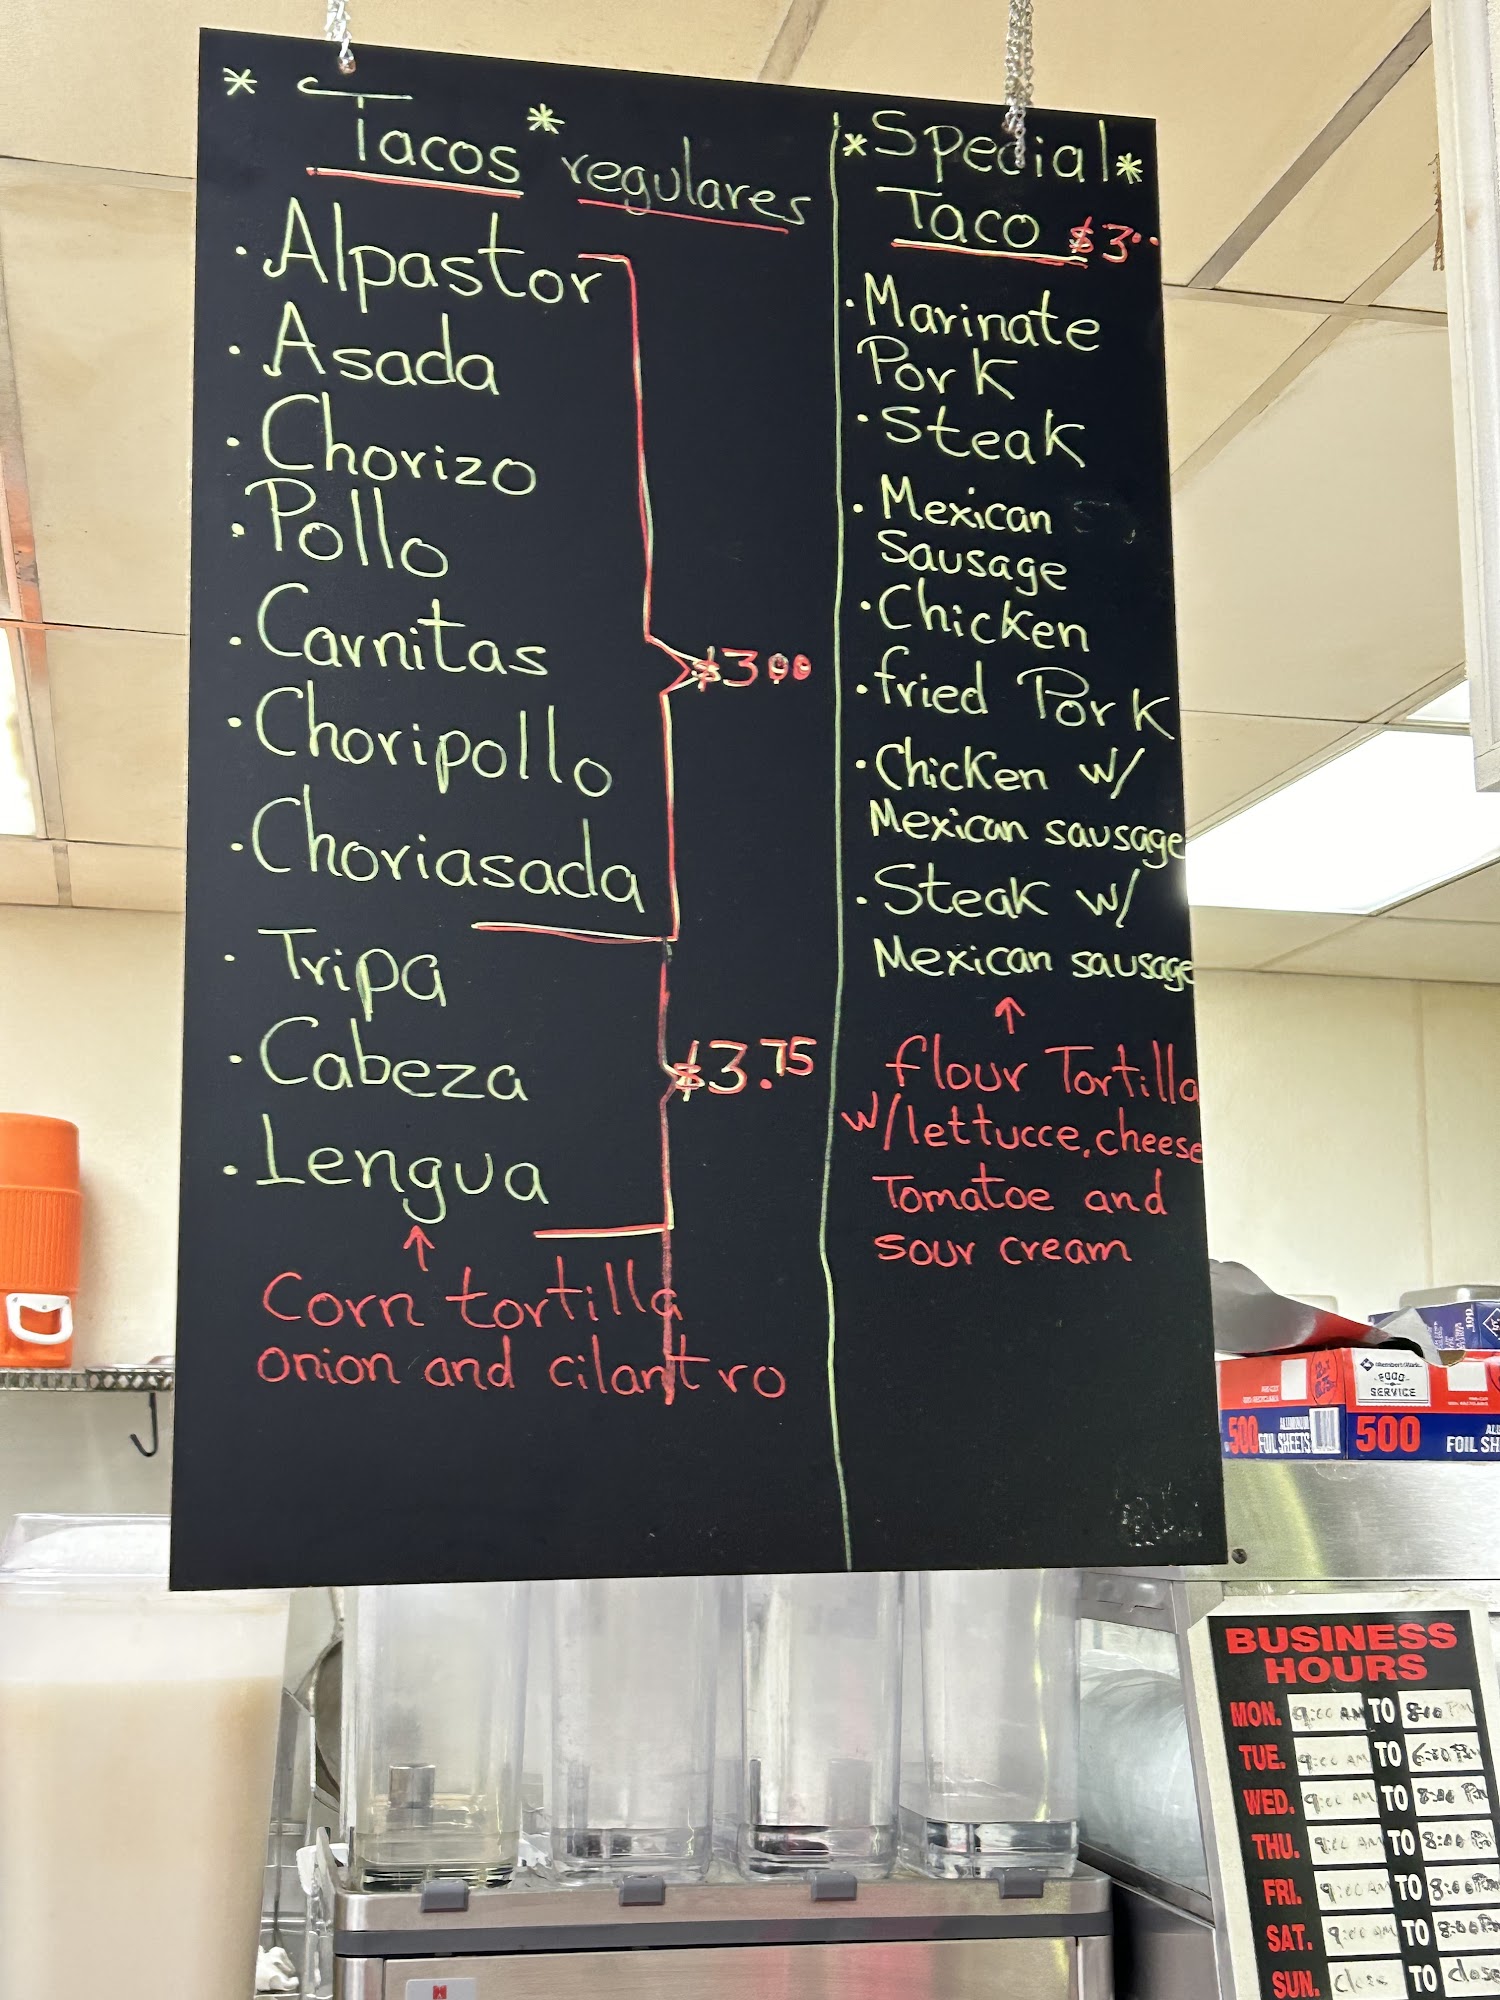 * Tacos * regulares
· Alpastor
· Asada
· Chorizo
· Pollo
· Carnitas
· Choripollo
· Choriasada
$3.00
· Tripa
· Cabeza
· Lengua
$3.75
↑
Corn tortilla
onion and cilantro
*Special*
Taco $3.00
· Marinate
Pork
· Steak
· Mexican
Sausage
· Chicken
· fried Pork
· Chicken w/
Mexican sausage
· Steak w/
Mexican sausage
↑
flour Tortilla
w/lettucce, cheese
Tomatoe and
sour cream
Member's Mark
FOOD
SERVICE
500 FOIL SHEETS
500 FOIL SH
BUSINESS
HOURS
MON. 9:00 AM TO 8:00 PM
TUE. 9:00 AM TO 6:00 PM
WED. 9:00 AM TO 8:00 PM
THU. 9:00 AM TO 8:00 PM
FRI. 9:00 AM TO 8:00 PM
SAT. 9:00 AM TO 8:00 PM
SUN. Close TO close